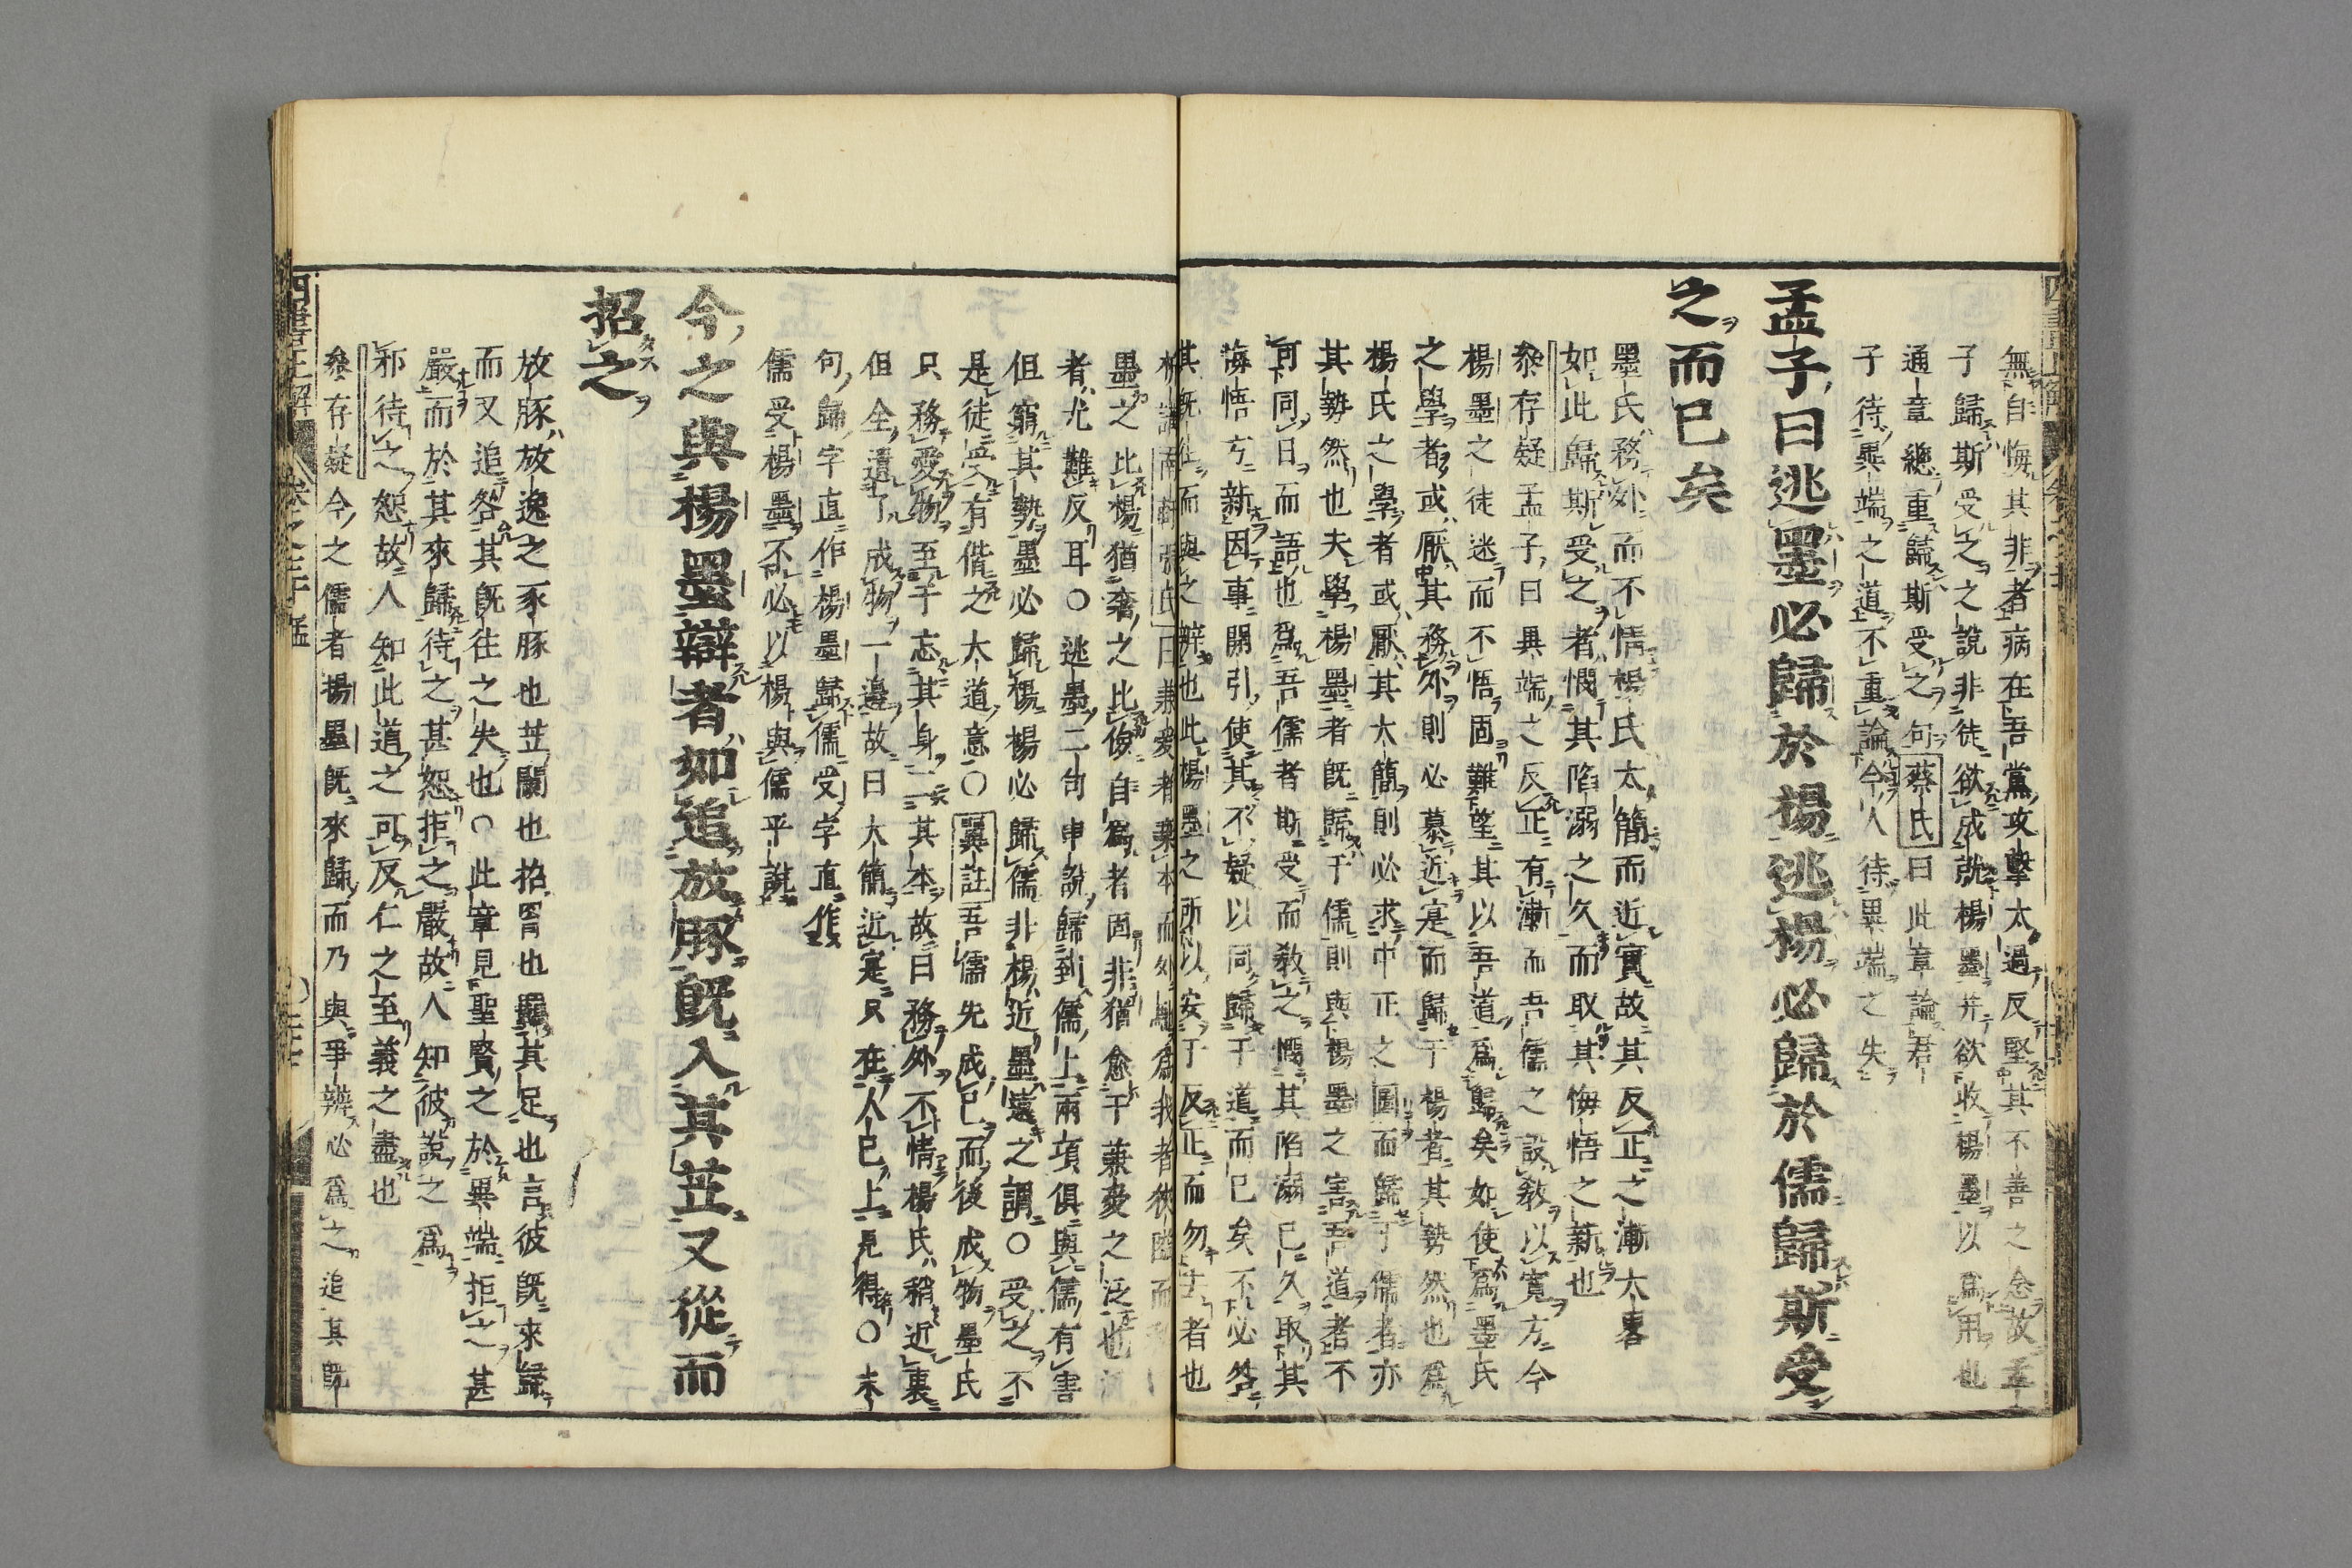 無自悔其非者病在吾黨攻擊太過反堅其不善之念故孟
子歸斯受之之說非徒欲成就楊墨并欲收楊墨以爲用也
通章總重歸斯受之句蔡氏曰此章論君
子待異端之道不重論今人待異端之失
孟子曰逃墨必歸於楊逃楊必歸於儒歸斯受
之而已矣
墨氏務外而不情楊氏太簡而近實故其反正之漸大畧
如此歸斯受之者憫其陷溺之久而取其悔悟之新也
叅存疑孟子曰異端之反正有漸而吾儒之設敎以寬方今
楊墨之徒迷而不悟固難望其以吾道爲歸矣如使爲墨氏
之學者或厭其務外則必慕近寔而歸于楊者其勢然也爲
楊氏之學者或厭其大簡則必求中正之圖而歸于儒者亦
其勢然也夫學楊墨者旣歸于儒則與楊墨之害吾道者不
可同日而語也爲吾儒者斯受而敎之憫其陷溺已久取其
悔悟方新因事開引使其不疑以同歸于道而已矣不必咎
其旣往而與之辨也此楊墨之所以安于反正而勿去者也
南軒張氏曰兼愛者棄本而外馳爲我者狹隘而
墨之比楊猶奢之比儉自爲者固非猶愈于兼愛之泛也
者尤難反耳○逃墨二句申說歸到儒上兩項俱與儒有害
但窮其勢墨必歸楊楊必歸儒非楊近墨遠之謂○受之不
是徒受有偕之大道意○翼註吾儒先成已而後成物墨氏
只務愛物至于忘其身二其本故曰務外不情楊氏稍近裏
但全遺了成物一邊故曰大簡近寔只在人已上見得○末
句歸字直作楊墨歸儒受字直作
儒受楊墨不必以楊與儒乎說
今之與楊墨辯者如追放豚旣入其苙又從而
招之
放豚放逸之豕豚也苙闌也招罥也羈其足也言彼旣來歸
而又追咎其旣往之失也○此章見聖賢之於異端拒之甚
嚴而於其來歸待之甚恕拒之嚴故人知彼說之爲
邪待之恕故人知此道之可反仁之至義之盡也
叅存疑今之儒者楊墨旣來歸而乃與爭辨必爲之追其旣